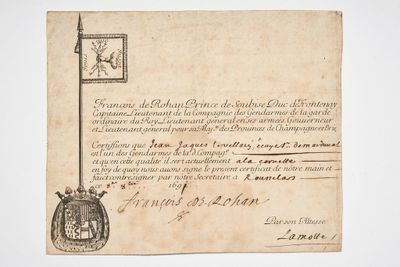 François de Rohan Prince de Soubise Duc de Frontenay
Capitaine Lieutenant de la Compagnie des Gendarmes de la garde
ordinaire du Roy, Lieutenant general en ses armées, Gouverneur
et Lieutenant general pour sa Maj.té des Provinces de Champagne et Brie
Certifions que Jean Jaques
est l'un des Gendarmes de lad. Compag.e
et qu'en cette qualité il sert actuellement a la cornette
en foy de quoy nous avons signé le present certificat de notre main et
faict contresigner par notre Secretaire a
169
François de Rohan
Par son Altesse
Lamotte